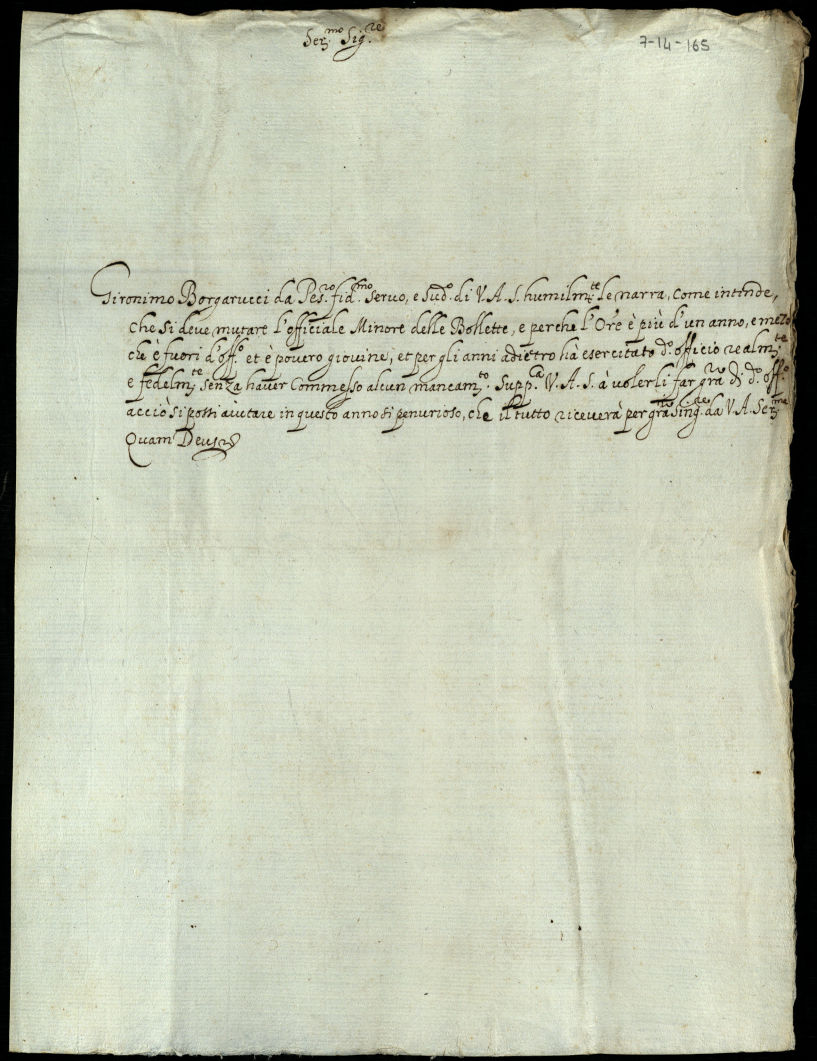 Ser.mo Sig.re
7-14-165
Gironimo Borgarucci da Pes.ro fid.mo servo, e Sud.o di V.A.S. humilm.te le narra, come intende,
che si deve mutare l'officiale Minore delle Bollette, e perche l'Ore è più d'un anno, e mezo
che è fuori d'off.o et è povero giovine, et per gli anni adietro hà esercitato d.o officio realm.te
e fedelm.te senza haver Commesso alcun mancam.to. Supp.ca V.A.S. à volerli far gra di d.o off.o
acciò si possi aiutare in questo anno sì penurioso, che il tutto riceverà per gra sing.re da V.A. Ser.ma
Quam Deus